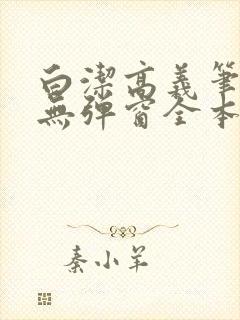 白潔高義筆
無彈窗全本
秦小羊